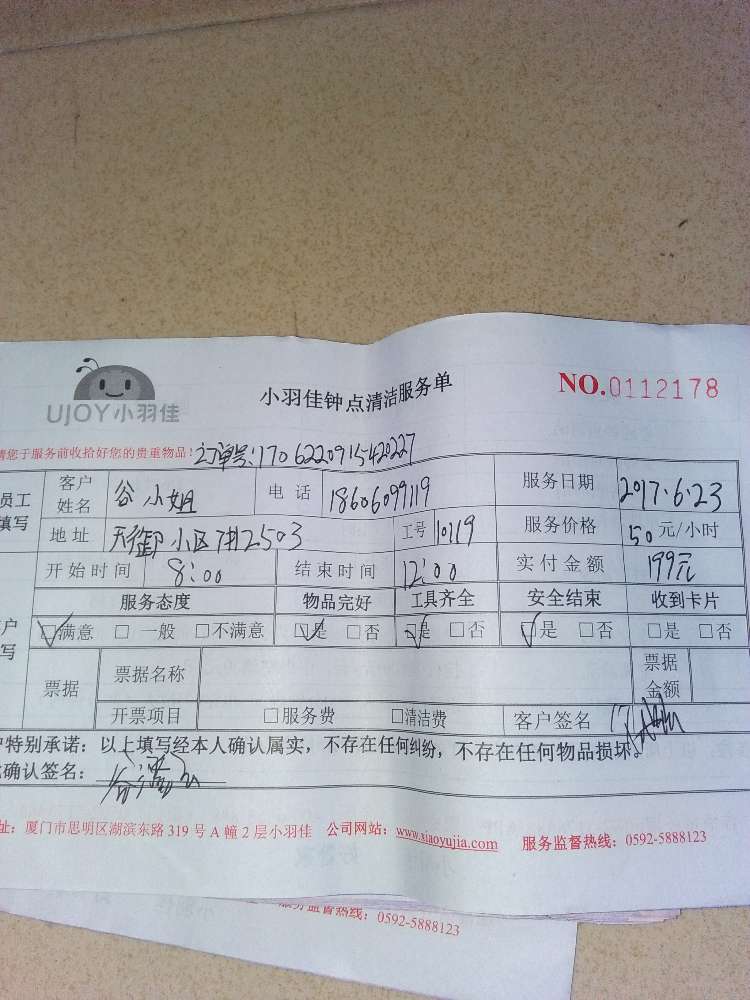 UJOY小羽佳
小羽佳钟点清洁服务单
NO.0112178
请您于服务前收拾好您的贵重物品! 订单号:1706220915420227
员工填写
客户姓名 谷小姐 电话 18606099119 服务日期 2017.6.23
地址 天御小区7#2503 工号 10119 服务价格 50元/小时
开始时间 8:00 结束时间 12:00 实付金额 199元
服务态度 物品完好 工具齐全 安全结束 收到卡片
户写
☑满意 □一般 □不满意 ☑是 □否 ☑是 □否 ☑是 □否 □是 □否
票据 票据名称 票据金额
开票项目 □服务费 □清洁费 客户签名
户特别承诺：以上填写经本人确认属实，不存在任何纠纷，不存在任何物品损坏。
确认签名：
址：厦门市思明区湖滨东路 319 号 A 幢 2 层小羽佳 公司网站：www.xiaoyujia.com 服务监督热线：0592-5888123
服务监督热线：0592-5888123